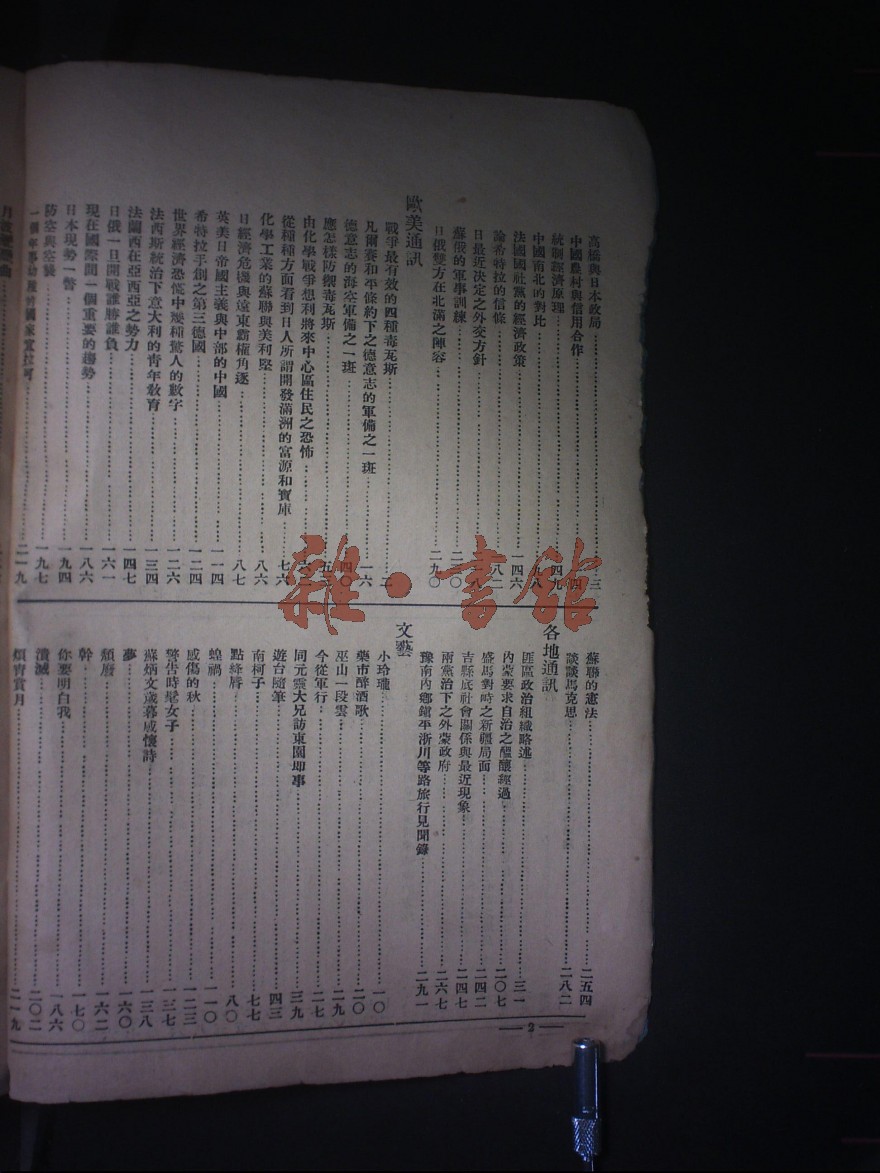 高橋與日本政局 三
中國農村與信用合作 四
統制經濟原理 四九
中國南北的對比 九八
法國國社黨的經濟政策 一四六
論希特拉的信條 八二
日最近決定之外交方針
蘇俄的軍事訓練 二二〇
日俄雙方在北滿之陣容 二九〇
歐美通訊
戰爭最有效的四種毒瓦斯 二
凡爾賽和平條約下之德意志的軍備之一斑 一六
德意志的海空軍備之一斑 四〇
應怎樣防禦毒瓦斯
由化學戰爭想到將來中心區住民之恐怖
從種種方面看到日人所謂開發滿洲的富源和寶庫 七六
化學工業的蘇聯與美利堅 八六
日經濟危機與遠東霸權角逐 八七
英美日帝國主義與中部的中國 一一四
希特拉手創之第三德國 一二四
世界經濟恐慌中幾種驚人的數字 一二六
法西斯統治下意大利的青年教育 一三四
法蘭西在亞西亞之勢力 一四七
日俄一旦開戰誰勝誰負 一六一
現在國際間一個重要的趨勢 一八六
日本現勢一瞥 一九四
防空與空襲 一九七
二一九
蘇聯的憲法 二五四
談談馬克思 二八二
各地通訊
匪區政治組織略述 三一
內蒙要求自治之醞釀經過 二〇七
盛馬對峙之新疆局面 二四二
吉縣底社會關係與最近現象 二四七
兩黨治下之外蒙政府 二六七
豫南內鄉鎮平淅川等路旅行見聞錄 二九一
文藝
小玲瓏 一〇
藥市醉酒歌 二〇
巫山一段雲 二九
今從軍行 二七
同元靈大兄訪東園即事 三九
遊台隨筆 四三
南柯子 七七
點絳唇 八〇
蝗禍 一一〇
感傷的秋 一二三
警告時髦女子 一三七
蘇炳文歲暮感懷詩 一三八
夢 一六〇
頹唇 一六二
幹 一七〇
你要明白我 一八六
潰滅 二〇二
煩宵賞月 二一九
— 3 —
雜·書館